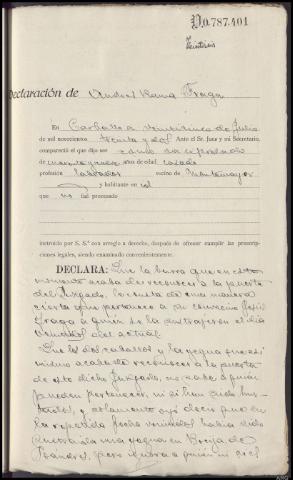 D.0.787.401
Declaración de Andrés Rama Fraga
En Carballo a veinticinco de Julio
de mil novecientos treinta y dos Ante el Sr. Juez y mi Secretario
compareció el que dijo ser como se expresado
de años de edad casado
profesión labrador vecino de Montemayor
y habitante en id
que no fué procesado
instruido por S. S.ª con arreglo a derecho, después de ofrecer cumplir las prescrip-
ciones legales, siendo examinado convenientemente.
DECLARA: Que la burra que en este
momento acaba de reconocer a la puerta
del Juzgado, le consta de una manera
cierta que pertenece a su convecino José
Fraga a quien se la sustrajeron el día
veintidós del actual.
Que los dos caballos y la yegua que así
mismo acaba de reconocer a la puerta
de este dicho Juzgado, no sabe a quien
puedan pertenecer, ni si han sido hur-
tados, y solamente oyó decir que en
la repetida fecha veintidós había sido
sustraída una yegua en
pero ignora a quien ni